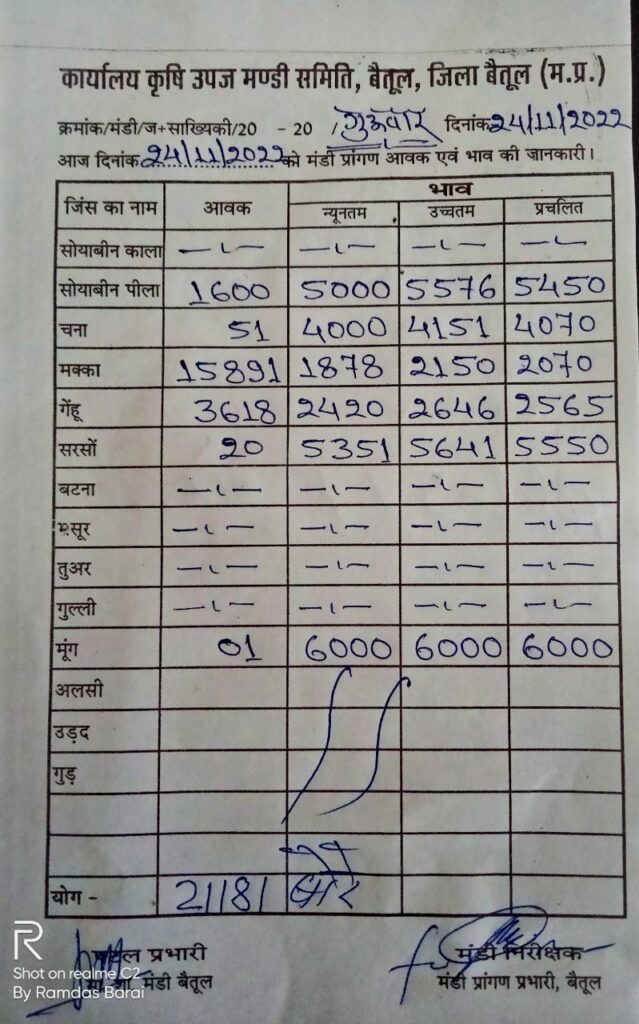 कार्यालय कृषि उपज मण्डी समिति, बैतूल, जिला बैतूल (म.प्र.)
क्रमांक/मंडी/ज+साख्यिकी/20 - 20 / गुरूवार दिनांक 24/11/2022
आज दिनांक 24/11/2022 को मंडी प्रांगण आवक एवं भाव की जानकारी।
जिंस का नाम आवक भाव
न्यूनतम उच्चतम प्रचलित
सोयाबीन काला —।— —।— —।— —।—
सोयाबीन पीला 1600 5000 5576 5450
चना 51 4000 4151 4070
मक्का 15891 1878 2150 2070
गेंहू 3618 2420 2646 2565
सरसों 20 5351 5641 5550
बटना —।— —।— —।— —।—
मसूर —।— —।— —।— —।—
तुअर —।— —।— —।— —।—
गुल्ली —।— —।— —।— —।—
मूंग 01 6000 6000 6000
अलसी
उड़द
गुड़
योग - 21181 बोरे
प्रभारी मंडी निरीक्षक
मंडी बैतूल मंडी प्रांगण प्रभारी, बैतूल
R
Shot on realme C2
By Ramdas Barai